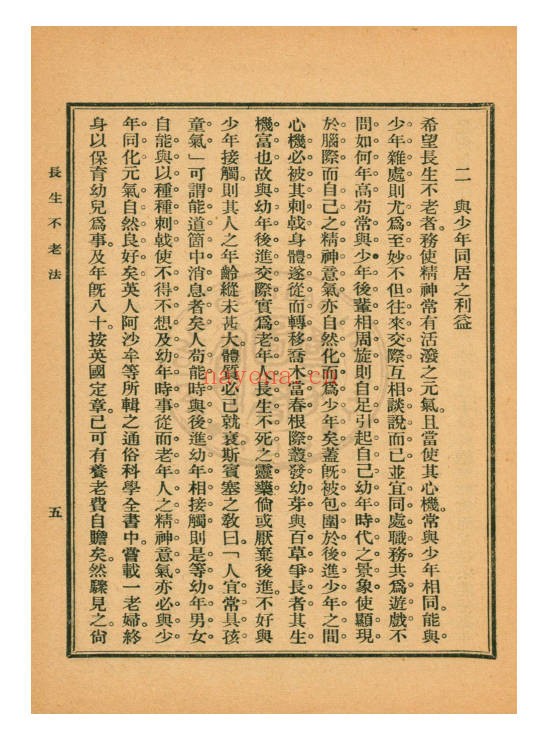 二　與少年同居之利益
希望長生不老者。務使精神常有活潑之元氣。且當使其心機。常與少年相同。能與
少年雜處。則尤爲至妙。不但往來交際互相談說而已。並宜同處職務。共爲遊戲。不
問如何年高。苟常與少年後輩相周旋。則自足引起自己幼年時代之景象。使顯現
於腦際。而自己之精神意氣。亦自然化而爲少年矣。蓋旣被包圍於後進少年之間。
心機必被其刺戟。身體遂從而轉移。喬木當春。根際叢發幼芽。與百草爭長者。其生
機富也。故與幼年後進交際。實爲老年人長生不死之靈藥。倘或厭棄後進。不好與
少年接觸。則其人之年齡縱未甚大。體質必已就衰。斯賓塞之敎曰。「人宜常具孩
童氣」可謂能道箇中消息者矣。人苟能時與後進幼年相接觸。則是等幼年男女。
自能與以種種刺戟。使不得不想及幼年時事。從而老年人之精神意氣。亦必與少
年同化。元氣自然良好矣。英人阿沙牟等所輯之通俗科學全書中。嘗載一老婦。終
身以保育幼兒爲事。及年旣八十。按英國定章。已可有養老費自贍矣。然驟見之。尙
長生不老法
五
nayona.cn